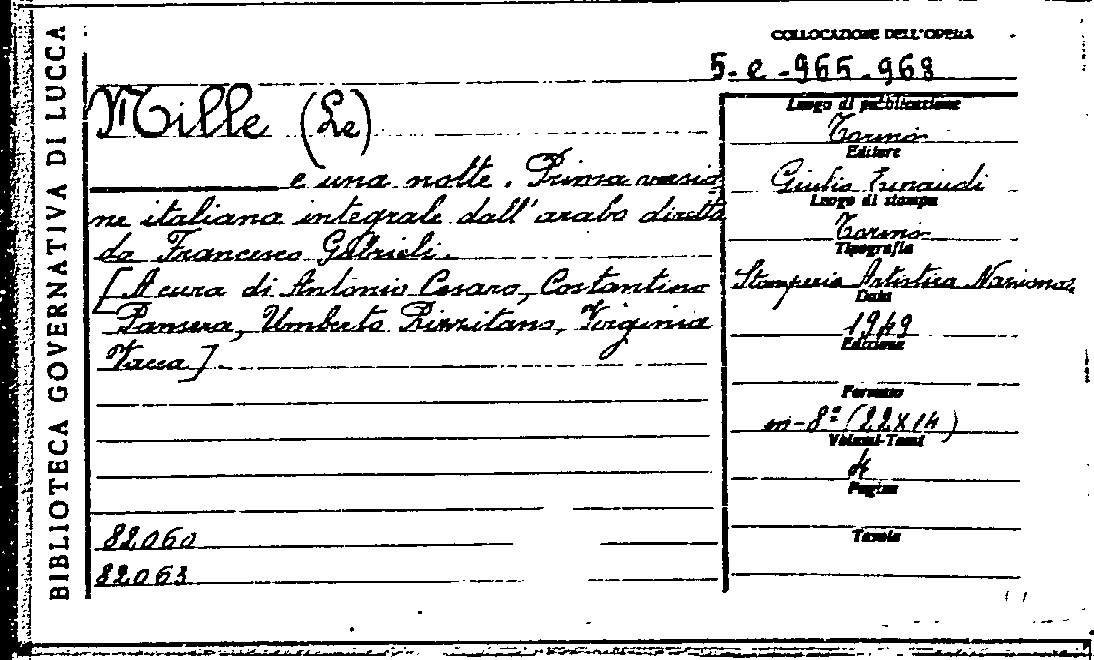 BIBLIOTECA GOVERNATIVA DI LUCCA
COLLOCAZIONE DELL'OPERA
5.e.965.968
Mille (Le)
e una notte. Prima versio
ne italiana integrale dall'arabo diretta
da Francesco Gabrieli.
[A cura di Antonio Cesaro, Costantino
Pansera, Umberto Rizzitano, Virginia
Vacca].
82060
82063
Luogo di pubblicazione
Torino
Editore
Giulio Einaudi
Luogo di stampa
Torino
Tipografia
Stamperia Artistica Nazional.
Data
1949
Edizione
Formato
in-8º (22x14)
Volumi-Tomi
4
Pagine
Tavole